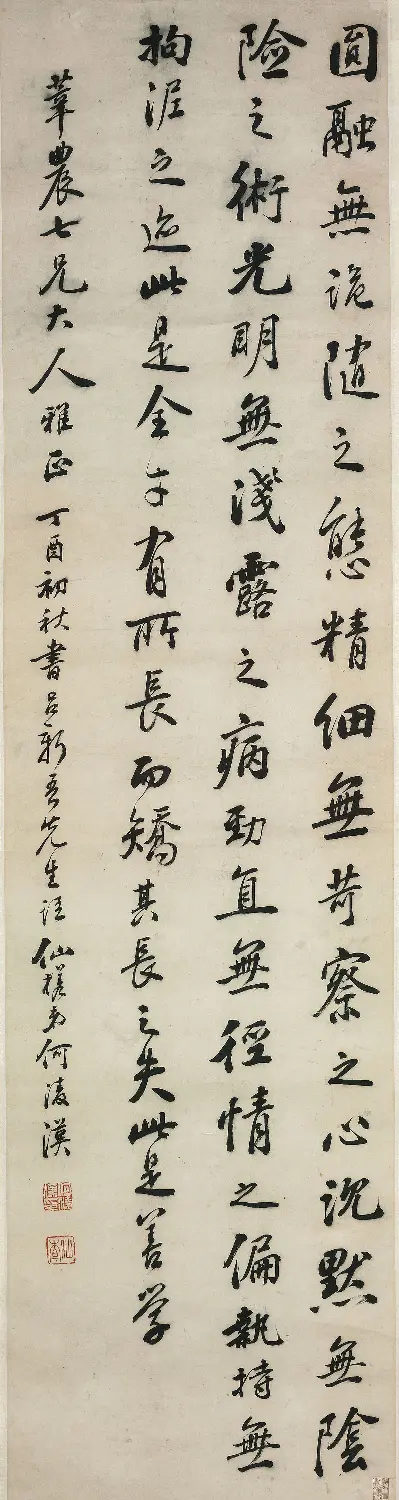 圓融無詭隨之態精細無苛察之心沈默無陰
險之術光明無淺露之病勁直無徑情之偏執持無
拘泥之迹此是全才有所長而矯其長之失此是善學
葦農七兄大人雅正 丁酉初秋書呂新吾先生語 仙槎弟何淩漢